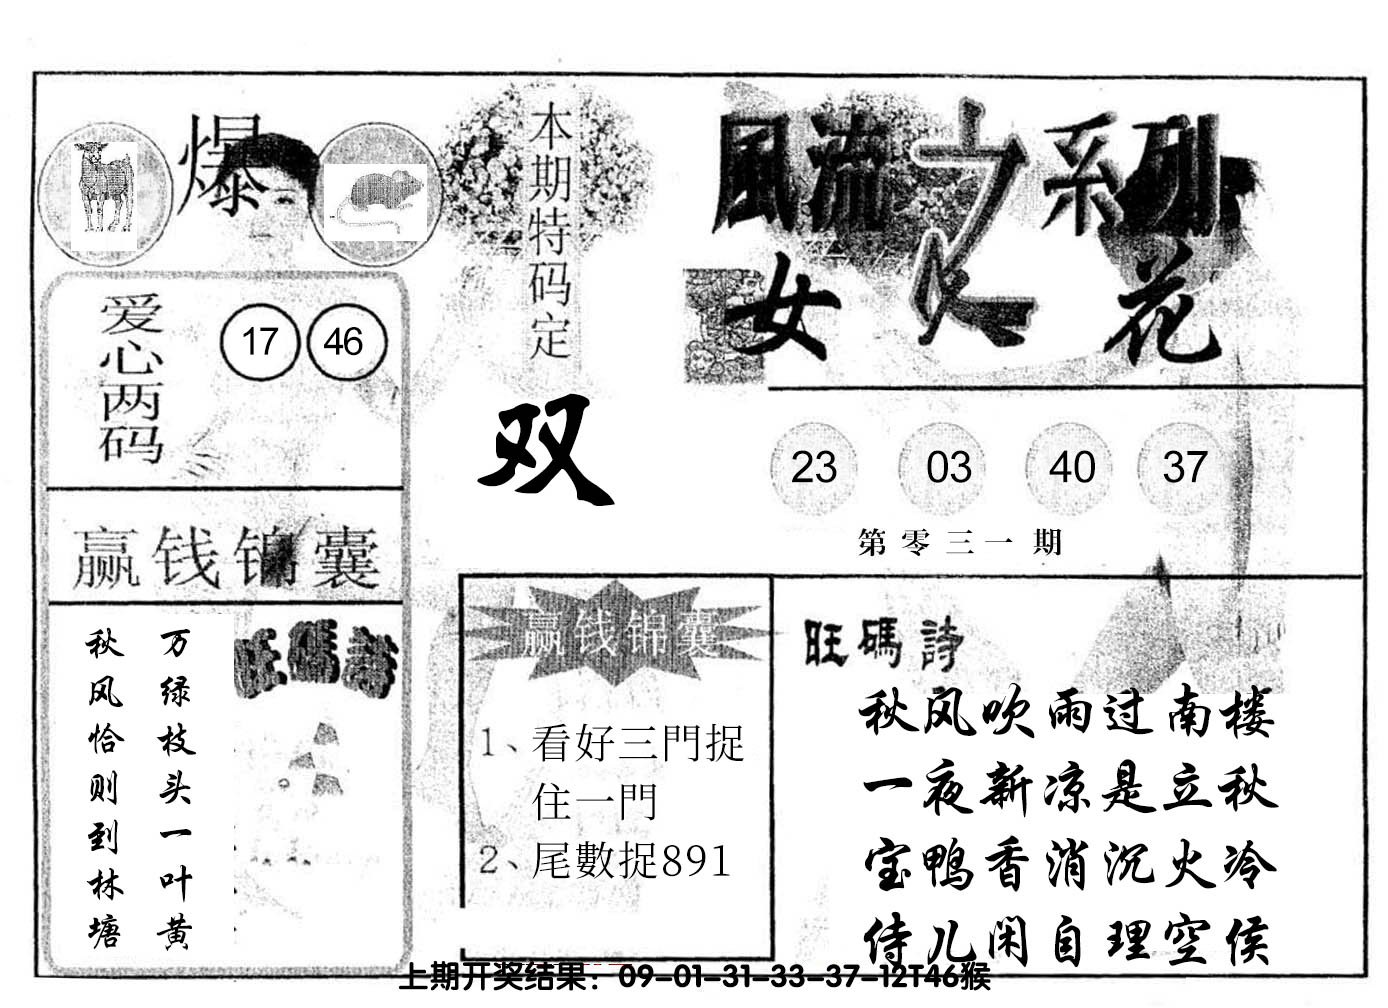 爆
本期特码定
双
風流之系列
女人花
爱心两码
17 46
23 03 40 37
第零三一期
赢钱锦囊
旺碼詩
万绿枝头一叶黄
秋风恰则到林塘
赢钱锦囊
1、看好三門捉
住一門
2、尾數捉891
旺碼詩
秋风吹雨过南楼
一夜新凉是立秋
宝鸭香消沉火冷
侍儿闲自理空侯
上期开奖结果：09-01-31-33-37-12T46猴